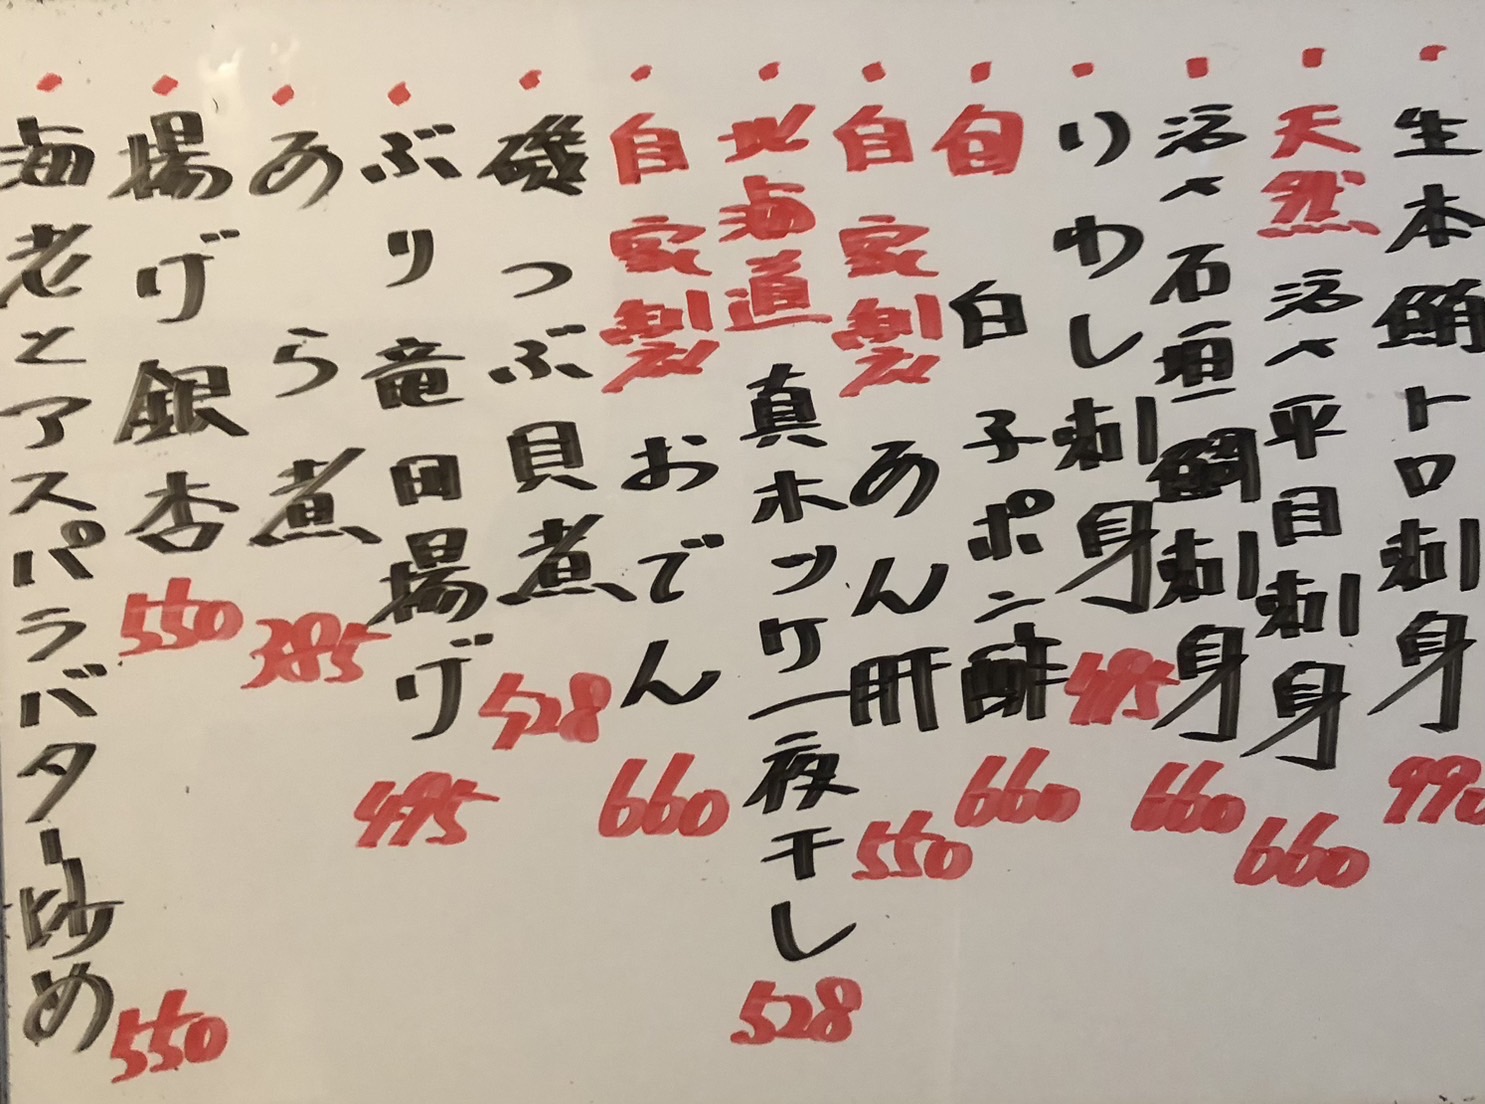 ・生本鮪トロ刺身 990
・天然活〆平目刺身 660
・活〆石垣鯛刺身 660
・いわし刺身 495
・旬白子ポン酢 660
・自家製あん肝 550
・北海道真ホッケ一夜干し 528
・自家製おでん 660
・磯つぶ貝煮 528
・ぶり竜田揚げ 495
・あら煮 385
・揚げ銀杏 550
・海老とアスパラバター炒め 550